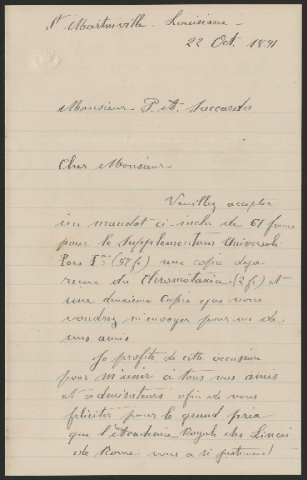 St Martinville - Louisiane -
22 Oct. 1891
Monsieur - P. A. Saccardo
Cher Monsieur -
Veuillez accepter
un mandat ci-inclu de 61 francs
pour le Supplementum Universale
Pars Ia (57 f.) une copie
du Chromotaxia (2 f.) et
une deuxième Copie que vous
voudrez m'envoyer pour un de
mes amis.
Je profite de cette occasion
pour m'unir à tous vos amis
et admirateurs afin de vous
féliciter pour le grand prix
que l'Academia Royale des Lincei
de Rome vous a si justement